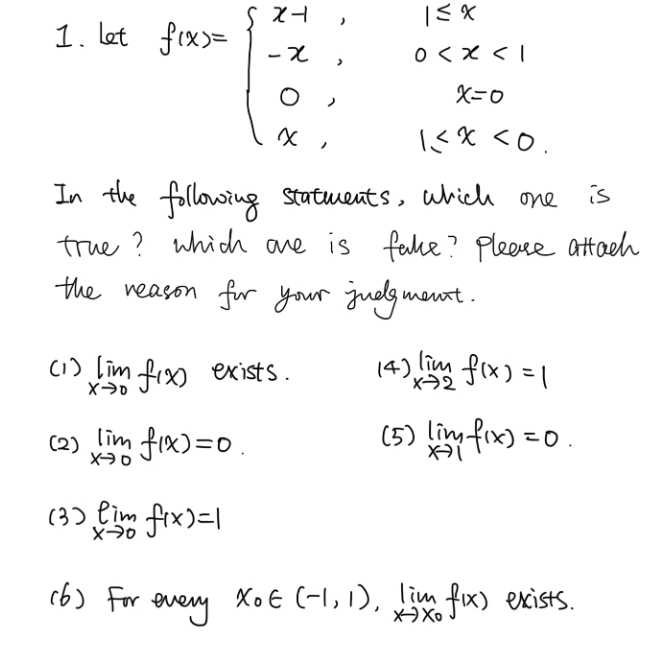 1. Let f(x)= { x-1 , 1≤x
-x , 0<x<1
0 , x=0
x , 1≤x<0.
In the following statments, which one is
true? which one is false? please attach
the reason for your judgment.
(1) lim x→0 f(x) exists.
(4) lim x→2 f(x)=1
(2) lim x→0 f(x)=0.
(5) lim x→1 f(x)=0.
(3) lim x→0 f(x)=1
(6) For every x₀∈(-1,1), lim x→x₀ f(x) exists.